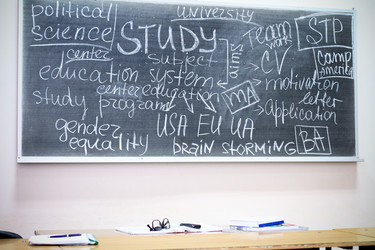 political
science
university
STUDY
Team
work
STP
center
subject
aims
CV
Camp
America
education system
motivation
letter
center education
MA
study programs
Application
gender
equality
USA EU UA
brain storming
BA